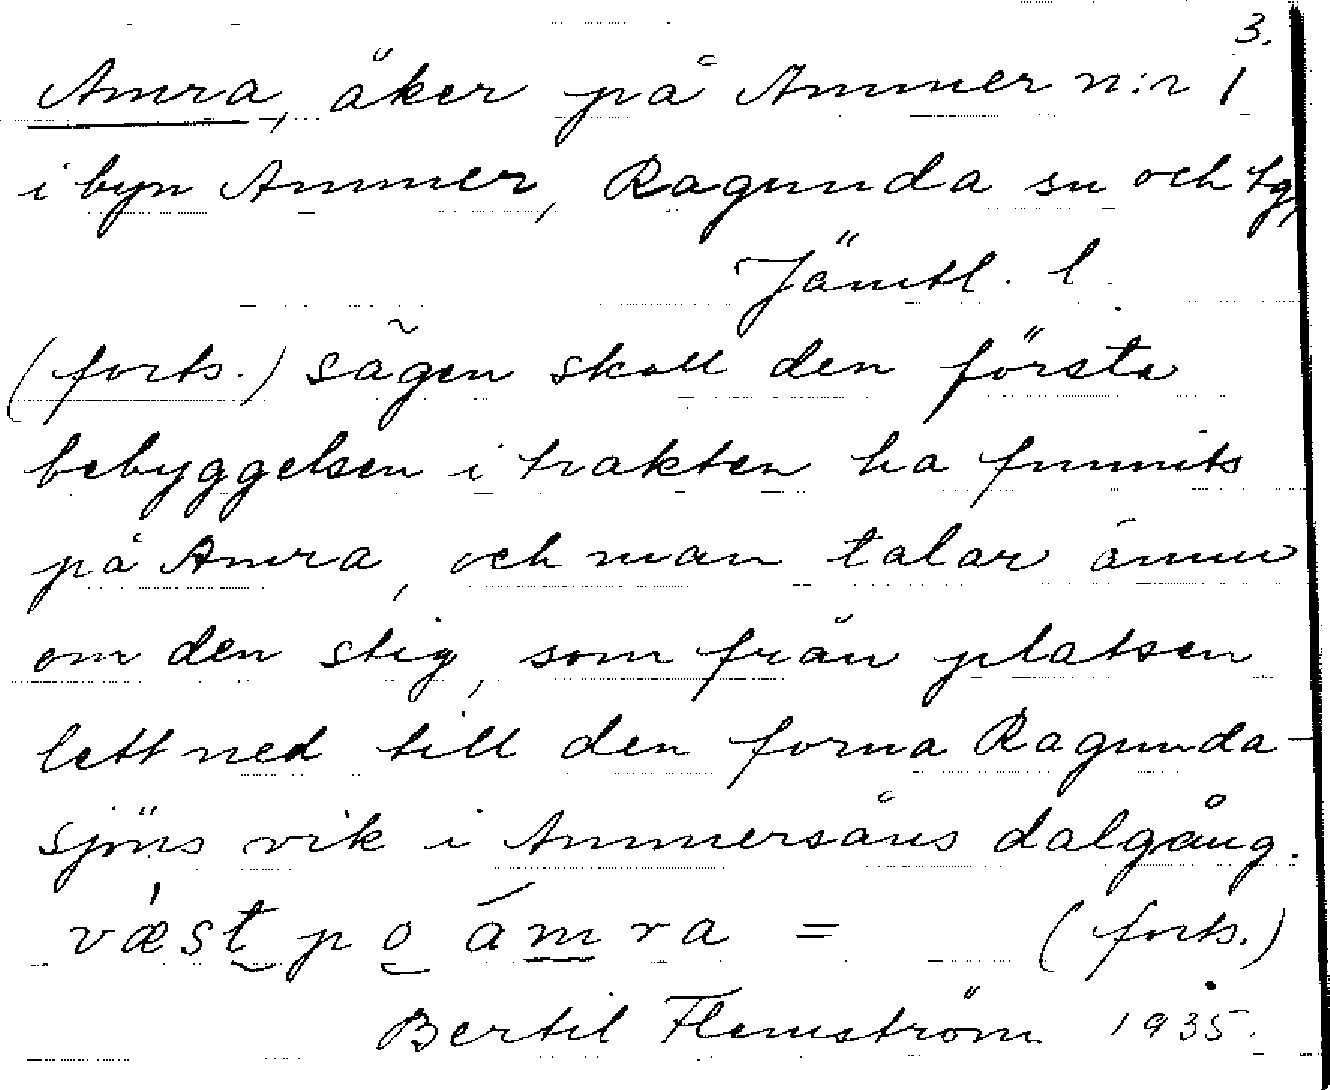 3.
Amra, åker på Ammer n:r 1
i byn Ammer, Ragunda sn och tg,
Jämtl. l.
(forts.) sägen skall den första
bebyggelsen i trakten ha funnits
på Amra, och man talar ännu
om den stig, som från platsen
lett ned till den forna Ragunda-
sjöns vik i Ammersåns dalgång.
væst po ámra = (forts.)
Bertil Flemström 1935.